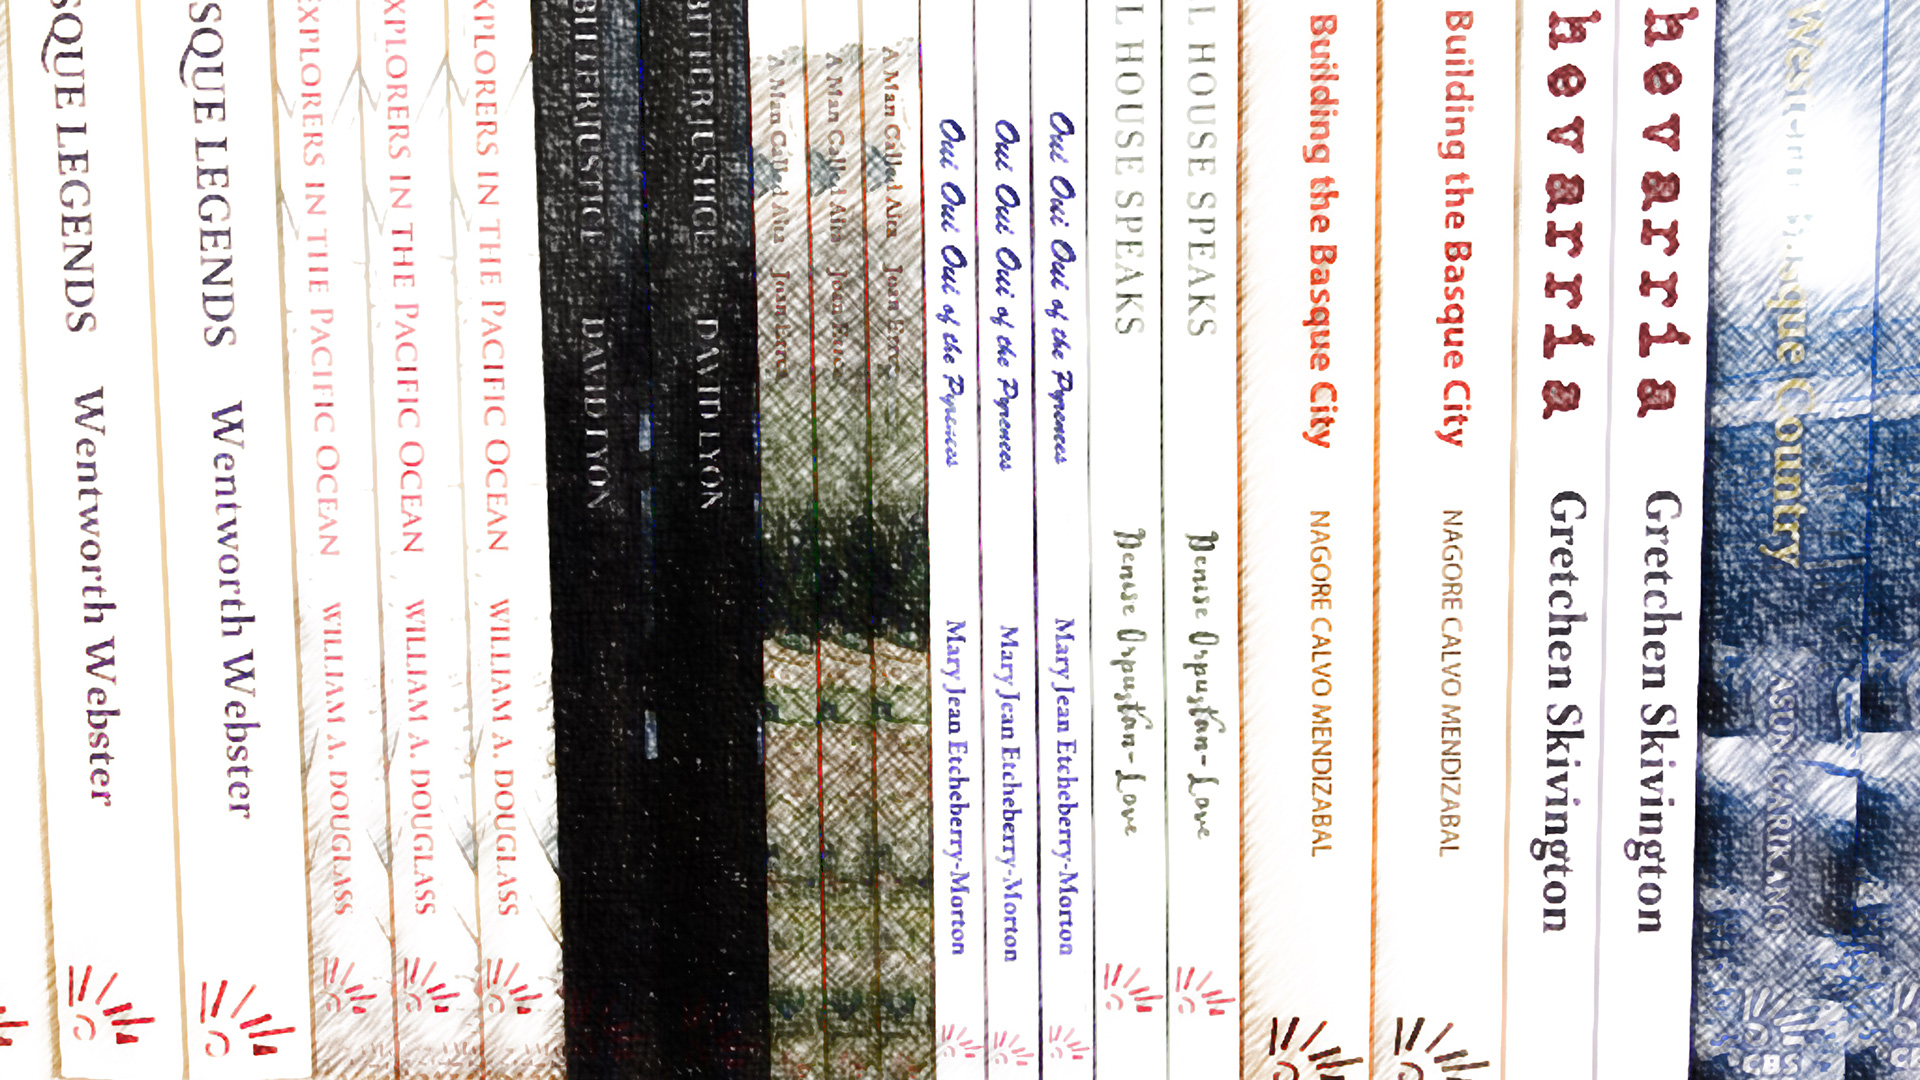 SQUE LEGENDS Wentworth Webster
SQUE LEGENDS Wentworth Webster
EXPLORERS IN THE PACIFIC OCEAN WILLIAM A. DOUGLASS
XPLORERS IN THE PACIFIC OCEAN WILLIAM A. DOUGLASS
XPLORERS IN THE PACIFIC OCEAN WILLIAM A. DOUGLASS
BITTER JUSTICE DAVID LYON
BITTER JUSTICE DAVID LYON
A Man Called Aita Joan Errea
A Man Called Aita Joan Errea
A Man Called Aita Joan Errea
Oui Oui Oui of the Pyrenees Mary Jean Etcheberry-Morton
Oui Oui Oui of the Pyrenees Mary Jean Etcheberry-Morton
Oui Oui Oui of the Pyrenees Mary Jean Etcheberry-Morton
L HOUSE SPEAKS Denise Orpustan-Love
L HOUSE SPEAKS Denise Orpustan-Love
Building the Basque City NAGORE CALVO MENDIZABAL
Building the Basque City NAGORE CALVO MENDIZABAL
hevarria Gretchen Skivington
hevarria Gretchen Skivington
Western Basque Country ASUN GARIKANO
CBS